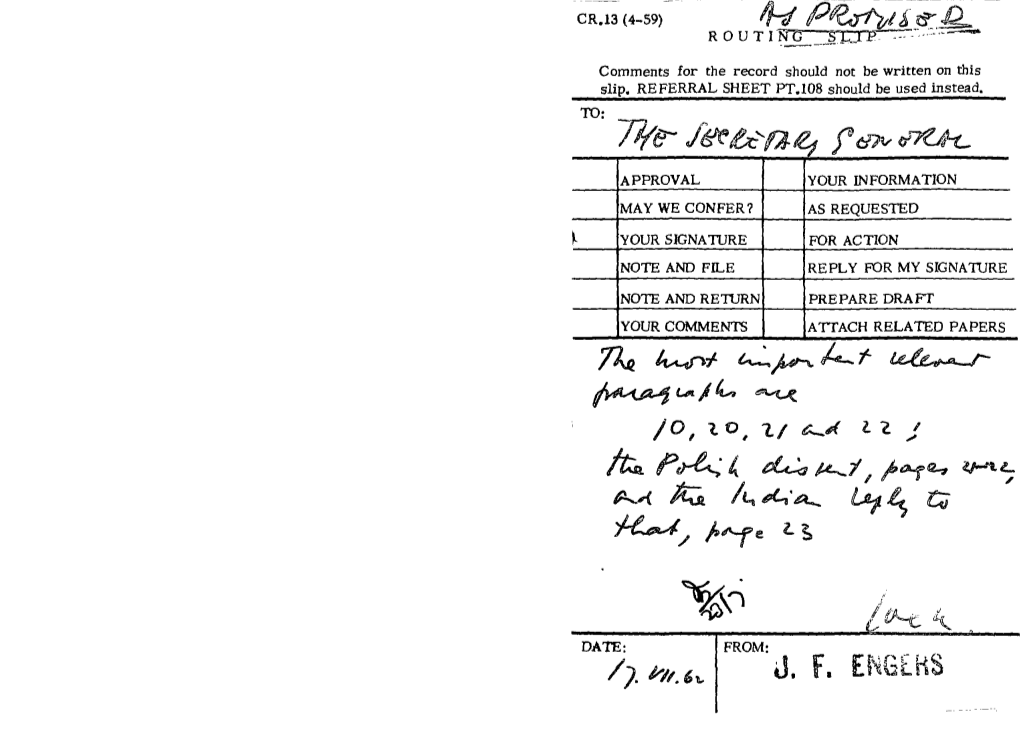 CR.13 (4-59)
AS PROMISED
ROUTING SLIP
Comments for the record should not be written on this
slip. REFERRAL SHEET PT.108 should be used instead.
TO:
THE SECRETARY GENERAL
APPROVAL YOUR INFORMATION
MAY WE CONFER? AS REQUESTED
YOUR SIGNATURE FOR ACTION
NOTE AND FILE REPLY FOR MY SIGNATURE
NOTE AND RETURN PREPARE DRAFT
YOUR COMMENTS ATTACH RELATED PAPERS
The most important relevant
paragraphs are
10, 20, 21 and 22;
the Polish dissent, pages 21-22,
and the Indian reply to
that, page 23
20/7
DATE: FROM:
17.VII.62 J. F. ENGERS